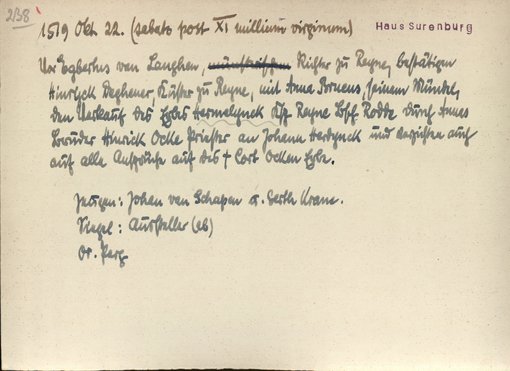 238
1519 Okt. 22. (sabato post XI millium virginum)
Haus Surenburg
Vor Egbertus van Langhen, münstrischem Richter zu Reyne, bestätigen
Hinryck Deghener Küster zu Reyne, mit Anna Bornens, seinem Mündel,
den Verkauf des Erbes Hermelynck Ksp Reyne Bsch. Rodde durch Annas
Bruder Hinrick Ocke Priester an Johann Herdynck und verzichten auch
auf alle Ansprüche auf des † Cort Ocken Erbe.
Zeugen: Johan van Schapen u. Gerth Krane.
Siegel: Aussteller (ab)
Or. Perg.